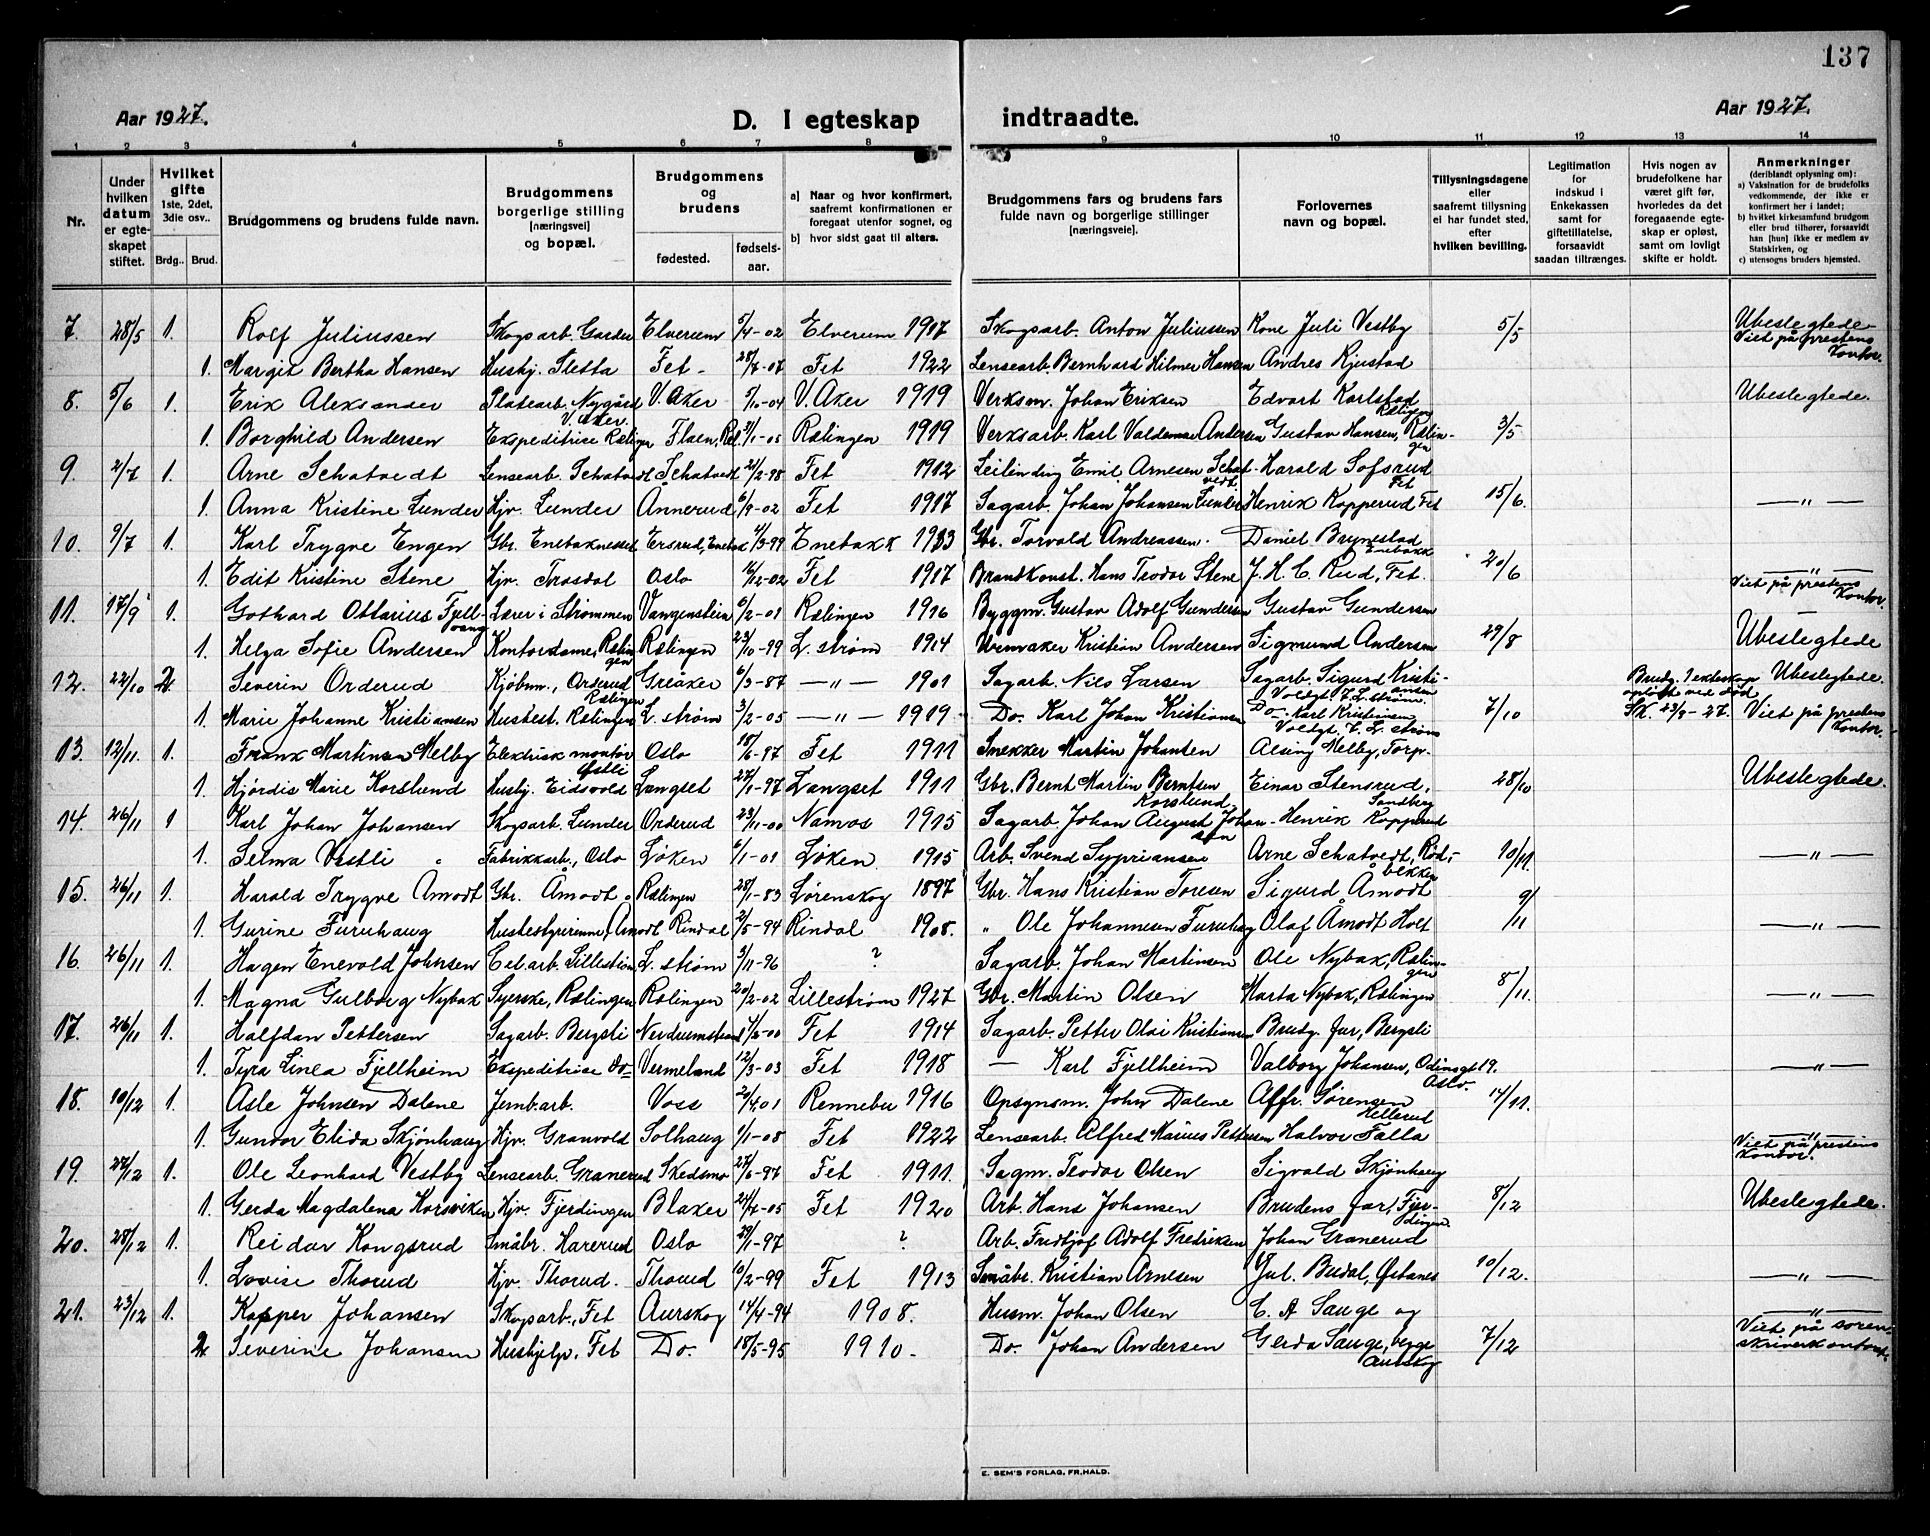 137
Aar 1927. D. I egteskap indtraadte. Aar 1927.
1 2 3 4 5 6 7 8 9 10 11 12 13 14
Nr.
Under hvilken datum er egteskapet stiftet.
Hvilket gifte 1ste, 2det, 3die osv..
Brdg.. Brud.
Brudgommens og brudens fulde navn.
Brudgommens borgerlige stilling [næringsvei] og bopæl.
Brudgommens og brudens
fødested. fødsels-aar.
a) Naar og hvor konfirmert, saafremt konfirmationen er foregaat utenfor sognet, og
b) hvor sidst gaat til alters.
Brudgommens fars og brudens fars fulde navn og borgerlige stillinger [næringsveie].
Forlovernes navn og bopæl.
Tillysningsdagene eller saafremt tillysning ei har fundet sted, efter hvilken bevilling.
Legitimation for indskud i Enkekassen samt for giftetillatelse, forsaavidt saadan tiltrænges.
Hvis nogen av brudefolkene har været gift før, hvorledes da det foregaaende egteskap er opløst, samt om lovligt skifte er holdt.
Anmerkninger (deriblandt oplysning om):
a) Vaksination for de brudefolks vedkommende, der ikke er konfirmert her i landet;
b) hvilket kirkesamfund brudgom eller brud tilhører, forsaavidt han [hun] ikke er medlem av Statskirken, og
c) utensogns bruders hjemsted.
7. 28/5 1. Rolf Juliussen Skogsarb. Garder Elverum 5/4-02 Elverum 1917 Skogsarb. Anton Juliussen Kone Juli Vestby 5/5 Ubeslegtede Viet på prestens kontor.
1. Margit Bertha Hansen Hushj. Sletta Fet 28/7-07 Fet 1922 Lensearb. Bernhard Hilmer Hansen Andres Kjustad
8. 5/6 1. Erik Aleksander Platearb. Nygård V. Aker. V. Aker 5/10-04 V. Aker 1919 Verksm. Johan Eriksen Edvart Karlstad Rælingen Ubeslegtede.
1. Borghild Andersen Ekspeditrise Rælingen Flaen, Ræl. 3/1-05 Rælingen 1919 Verksarb. Karl Valdemar Andersen Gustav Hansen, Rælingen 3/5
9. 2/7 1. Arne Schatvedt Lensearb. Schatvedt Schatvedt 21/2-98 Fet 1912 Leilending Emil Arnesen Schatvedt Harald Sofsrud Fet
1. Anna Kristine Lunder Hjv. Lunder Ånnerud 6/9-02 Fet 1917 Sagarb. Johan Johansen Lunder Henrik Kopperud Fet 15/6 — " —
10. 9/7 1. Karl Trygve Engen Gbr. Enebaknesset Ersrud, Enebak 4/3-99 Enebakk 1913 Gbr. Torvald Andreassen. Daniel Brynestad Enebakk
1. Edit Kristine Stene Hjv. Trosdal Oslo 16/12-02 Fet 1917 Brandkonst. Hans Teodor Stene J. H. C. Rud, Fet. 20/6 — " — Viet på prestens kontor.
11. 17/9 1. Gothard Ottarius Fjellvang Lærer i Strømmen Vangenstein 6/2-01 Rælingen 1916 Byggm. Gustav Adolf Gundersen Gustav Gundersen
1. Helga Sofie Andersen Kontordame, Rælingen Rælingen 23/10-99 L. strøm 1914 Urmaker Kristian Andersen Sigmund Andersen 29/8 Ubeslegtede
12. 22/10 2. Severin Orderud Kjøbm., Orderud Rælingen Greåker 6/3-87 — " — 1901 Sagarb. Nils Larsen Sagarb. Sigurd Kristiansen Voldgt. 7. L. strøm. Brudg. 1 ekteskap opløst ved død Sk. 23/9-27. Ubeslegtede.
1. Marie Johanne Kristiansen Husbest. Rælingen L. strøm 3/2-05 — " — 1919 Do. Karl Johan Kristiansen Do. Karl Kristiansen Voldgt. 7. L. strøm 7/10 Viet på prestens kontor.
13. 12/11 1. Frank Martinsen Melby Elektrisk montør Østli Oslo 18/6-97 Fet 1911 Snekker Martin Johansen Alsing Melby, Torp.
1. Hjørdis Marie Korslund Hushj. Eidsvold Langset 27/1-97 Langset 1911 Gbr. Bernt Martin Berntsen Korslund Einar Stensrud, Sandberg 28/10 Ubeslegtede.
14. 26/11 1 Karl Johan Johansen Skogsarb. Lunder Orderud 23/11-00 Namos 1915 Sagarb. Johan August Johansen Henrik Kopperud
1. Selma Vestli Fabrikkarb., Oslo Løken 6/1-01 Løken 1915 Arb. Svend Sypriansen Arne Schatvedt, Rødbekken 10/11. — " —
15. 26/11 1. Harald Trygve Amodt Gbr. Åmodt Rælingen 28/1-83 Lørenskog 1897 Gbr. Hans Kristian Toresen Sigurd Åmodt 9/11
1. Gurine Furuhaug Husbestyrerinne, Amodt Rindal 2/5-94 Rindal 1908. " Ole Johannesen Furuhaug Olaf Åmodt Holt — " —
16. 26/11 1. Hagen Enevold Johnsen Cel. arb. Lillestrøm L. strøm 3/11-96 ? Sagarb. Johan Martinsen Ole Nybak, Rælingen
1. Magna Gulborg Nybak Syerske, Rælingen Rælingen 20/2-02 Lillestrøm 1927 Gbr. Martin Olsen Marta Nybak, Rælingen 8/11. — " —
17. 26/11 1. Halfdan Pettersen Sagarb. Bergsli Nerdrumstrand 1/2-00 Fet 1914 Sagarb. Petter Olai Kristiansen Brudg. far, Bergsli
1. Tyra Linea Fjellheim Ekspeditrise Do Vermeland 12/3-03 Fet 1918 — Karl Fjellheim Valborg Johansen, Odinsgt 19. Oslo. — " —
18. 10/12 1. Asle Johnsen Dalene Jernb.arb. Voss 2/4.01 Rennebu 1916 Opsynsm. John Dalene Alfr. Sørensen Hellerud 14/11.
1. Gundor Elida Skjønhaug Hjv. Granvold Solhaug 1/1-08 Fet 1922 Lensearb. Alfred Marius Pettersen Halvor Falla — " — Viet på prestens kontor.
19. 27/12 1. Ole Leonhard Vestby Lensearb. Granerud Skedsmo 27/6-97 Fet 1911. Sagm. Teodor Olsen Sigvald Skjønhaug
1. Gerda Magdalena Korsviken Hjv. Fjerdingen Blaker 24/4-05 Fet 1920 Arb. Hans Johansen Brudens far, Fjerdingen 8/12 Ubeslegtede.
20. 28/12 1. Reidar Kongsrud Småbr. Harerud Oslo 29/1-97 ? Arb. Fridtjof Adolf Fredriksen Johan Granerud
1. Lovise Thorud Hjv. Thorud. Thorud 6/2-99 Fet 1913 Småbr. Kristian Arnesen Jul. Budal, Østanes 10/12. — " —
21. 23/12 1. Kasper Johansen Skogsarb., Fet Aurskog 14/4-94 1908. Husm. Johan Olsen C. A Sauge og — " —
2. Severine Johansen Hushjelp, Fet Do. 18/5-95 1910. Do. Johan Andersen Gerda Sauge, begge Aurskog 7/12 Viet på sorenskriverkontoret.
E. SEM'S FORLAG, FR.HALD.